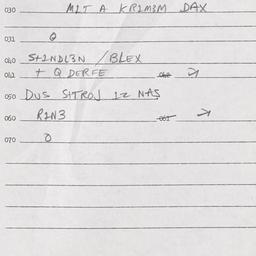 030 M1T A KR1M3M DAX
031 0
040 S+1NDL3N / BLEX
041 + Q DERFE →
050 DUS S1TROJ 12 NAS
060 R1N3 →
070 0